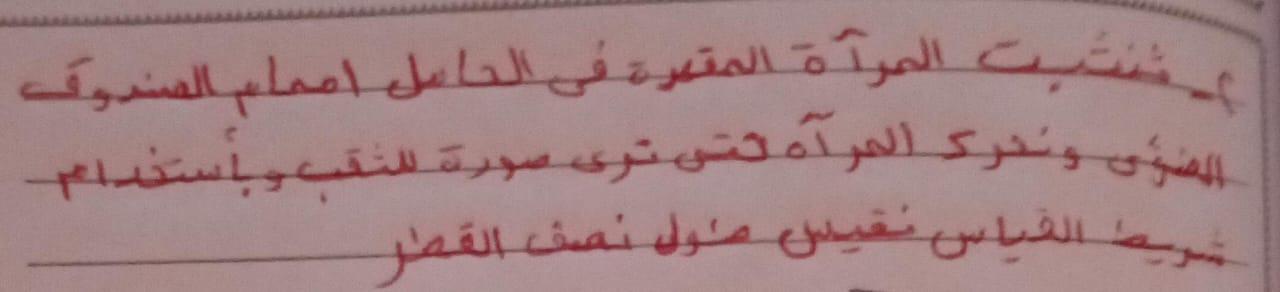 ٤- نثبت المرآة المقعرة في الحامل امام الصندوق
الضوئى ونحرك المرآه حتى ترى صورة للثقب وبأستخدام
شريط القياس نقيس طول نصف القطر